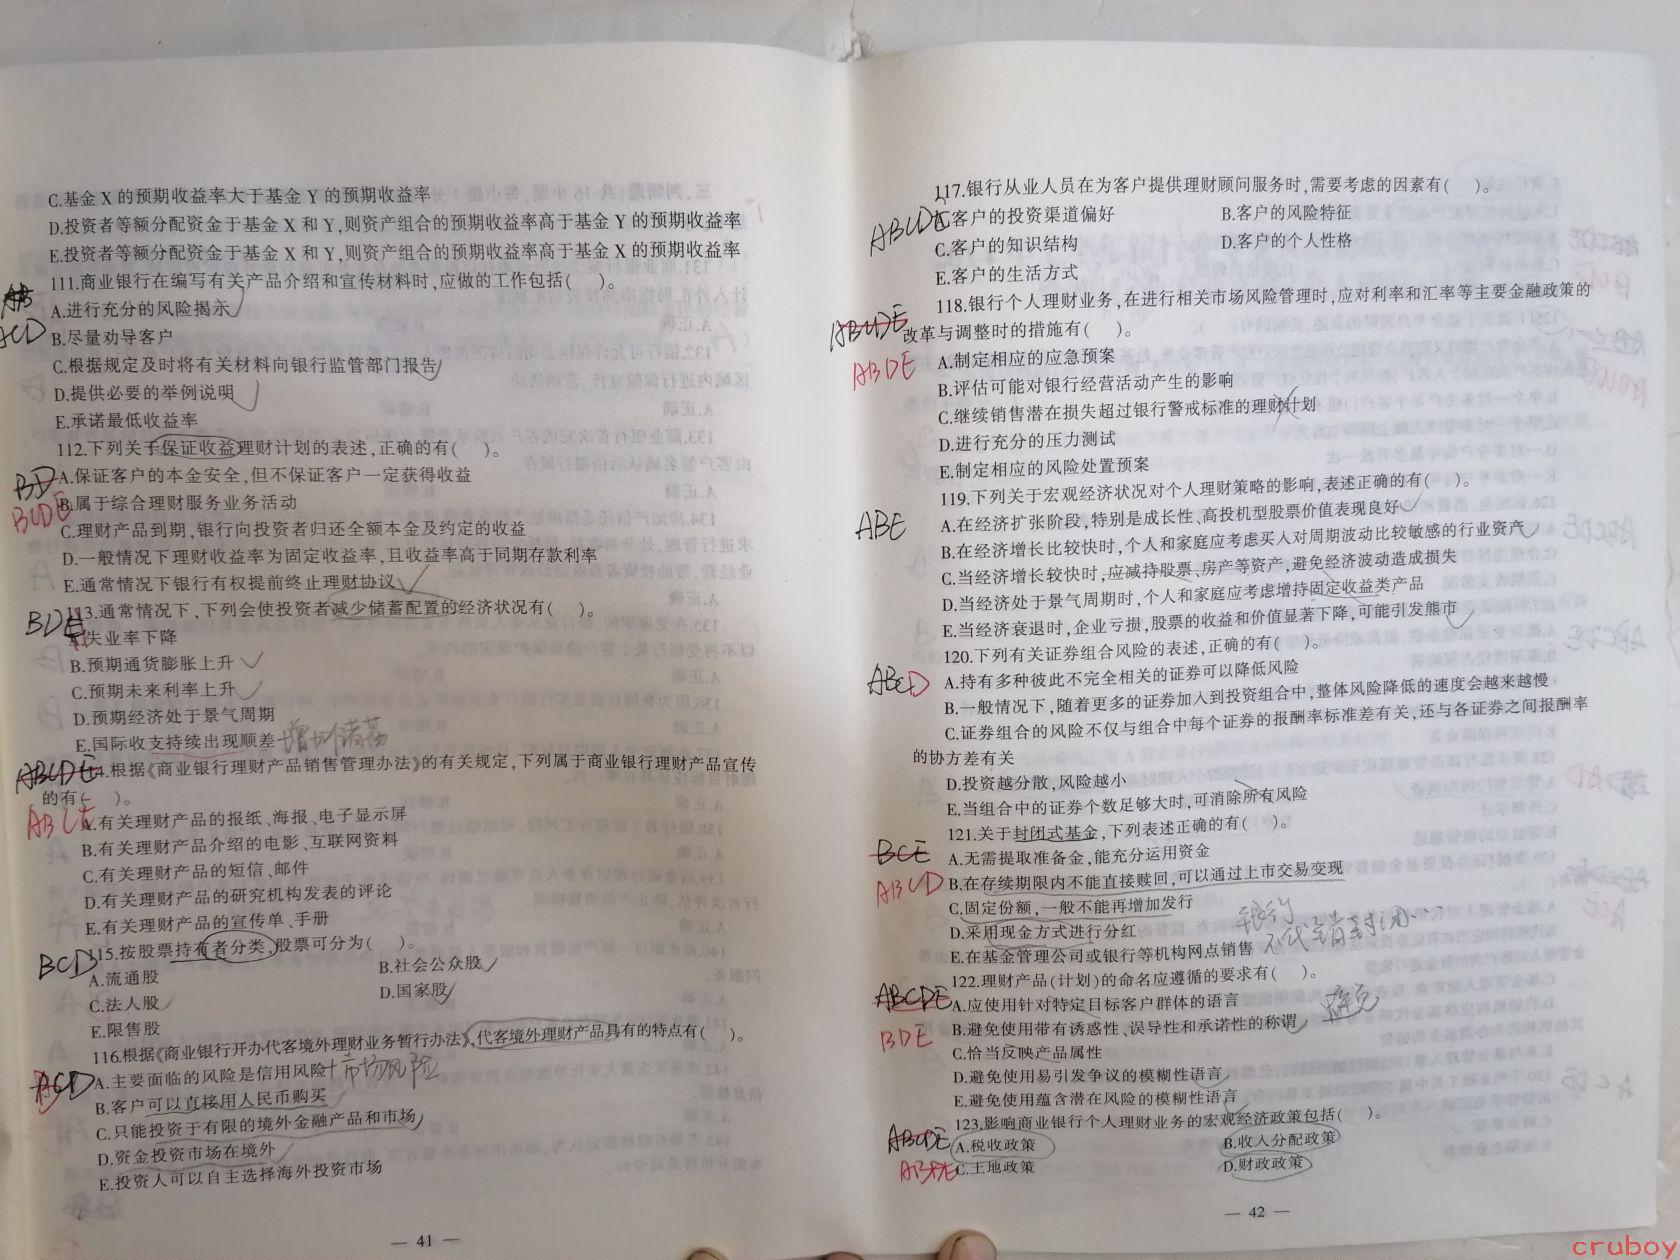 C.基金 X 的预期收益率大于基金 Y 的预期收益率
D.投资者等额分配资金于基金 X 和 Y,则资产组合的预期收益率高于基金 Y 的预期收益率
E.投资者等额分配资金于基金 X 和 Y,则资产组合的预期收益率高于基金 X 的预期收益率
111.商业银行在编写有关产品介绍和宣传材料时,应做的工作包括(　)。
A.进行充分的风险揭示
ACD
B.尽量劝导客户
C.根据规定及时将有关材料向银行监管部门报告
D.提供必要的举例说明
E.承诺最低收益率
112.下列关于保证收益理财计划的表述,正确的有(　)。
BD
A.保证客户的本金安全,但不保证客户一定获得收益
BCDE
B.属于综合理财服务业务活动
C.理财产品到期,银行向投资者归还全额本金及约定的收益
D.一般情况下理财收益率为固定收益率,且收益率高于同期存款利率
E.通常情况下银行有权提前终止理财协议
113.通常情况下,下列会使投资者减少储蓄配置的经济状况有(　)。
BDE
A.失业率下降
B.预期通货膨胀上升
C.预期未来利率上升
D.预期经济处于景气周期
E.国际收支持续出现顺差 增加储蓄
ABCDE
114.根据《商业银行理财产品销售管理办法》的有关规定,下列属于商业银行理财产品宣传
的有(　)。
ABCE
A.有关理财产品的报纸、海报、电子显示屏
B.有关理财产品介绍的电影、互联网资料
C.有关理财产品的短信、邮件
D.有关理财产品的研究机构发表的评论
E.有关理财产品的宣传单、手册
BCD
115.按股票持有者分类,股票可分为(　)。
A.流通股 B.社会公众股
C.法人股 D.国家股
E.限售股
116.根据《商业银行开办代客境外理财业务暂行办法》,代客境外理财产品具有的特点有(　)。
A.主要面临的风险是信用风险 市场风险
B.客户可以直接用人民币购买
C.只能投资于有限的境外金融产品和市场
D.资金投资市场在境外
E.投资人可以自主选择海外投资市场
— 41 —
117.银行从业人员在为客户提供理财顾问服务时,需要考虑的因素有(　)。
ABCDE
A.客户的投资渠道偏好 B.客户的风险特征
C.客户的知识结构 D.客户的个人性格
E.客户的生活方式
118.银行个人理财业务,在进行相关市场风险管理时,应对利率和汇率等主要金融政策的
ABCDE
改革与调整时的措施有(　)。
ABDE
A.制定相应的应急预案
B.评估可能对银行经营活动产生的影响
C.继续销售潜在损失超过银行警戒标准的理财计划
D.进行充分的压力测试
E.制定相应的风险处置预案
119.下列关于宏观经济状况对个人理财策略的影响,表述正确的有(　)。
ABE
A.在经济扩张阶段,特别是成长性、高投机型股票价值表现良好
B.在经济增长比较快时,个人和家庭应考虑买入对周期波动比较敏感的行业资产
C.当经济增长较快时,应减持股票、房产等资产,避免经济波动造成损失
D.当经济处于景气周期时,个人和家庭应考虑增持固定收益类产品
E.当经济衰退时,企业亏损,股票的收益和价值显著下降,可能引发熊市
120.下列有关证券组合风险的表述,正确的有(　)。
ABCD
A.持有多种彼此不完全相关的证券可以降低风险
B.一般情况下,随着更多的证券加入到投资组合中,整体风险降低的速度会越来越慢
C.证券组合的风险不仅与组合中每个证券的报酬率标准差有关,还与各证券之间报酬率
的协方差有关
D.投资越分散,风险越小
E.当组合中的证券个数足够大时,可消除所有风险
121.关于封闭式基金,下列表述正确的有(　)。
BCE
A.无需提取准备金,能充分运用资金
ABCD
B.在存续期限内不能直接赎回,可以通过上市交易变现
C.固定份额,一般不能再增加发行
D.采用现金方式进行分红
E.在基金管理公司或银行等机构网点销售
122.理财产品(计划)的命名应遵循的要求有(　)。
ABCDE
A.应使用针对特定目标客户群体的语言
避免
BDE
B.避免使用带有诱惑性、误导性和承诺性的称谓
C.恰当反映产品属性
D.避免使用易引发争议的模糊性语言
E.避免使用蕴含潜在风险的模糊性语言
123.影响商业银行个人理财业务的宏观经济政策包括(　)。
ABCDE
A.税收政策 B.收入分配政策
C.土地政策 D.财政政策
— 42 —
cruboy